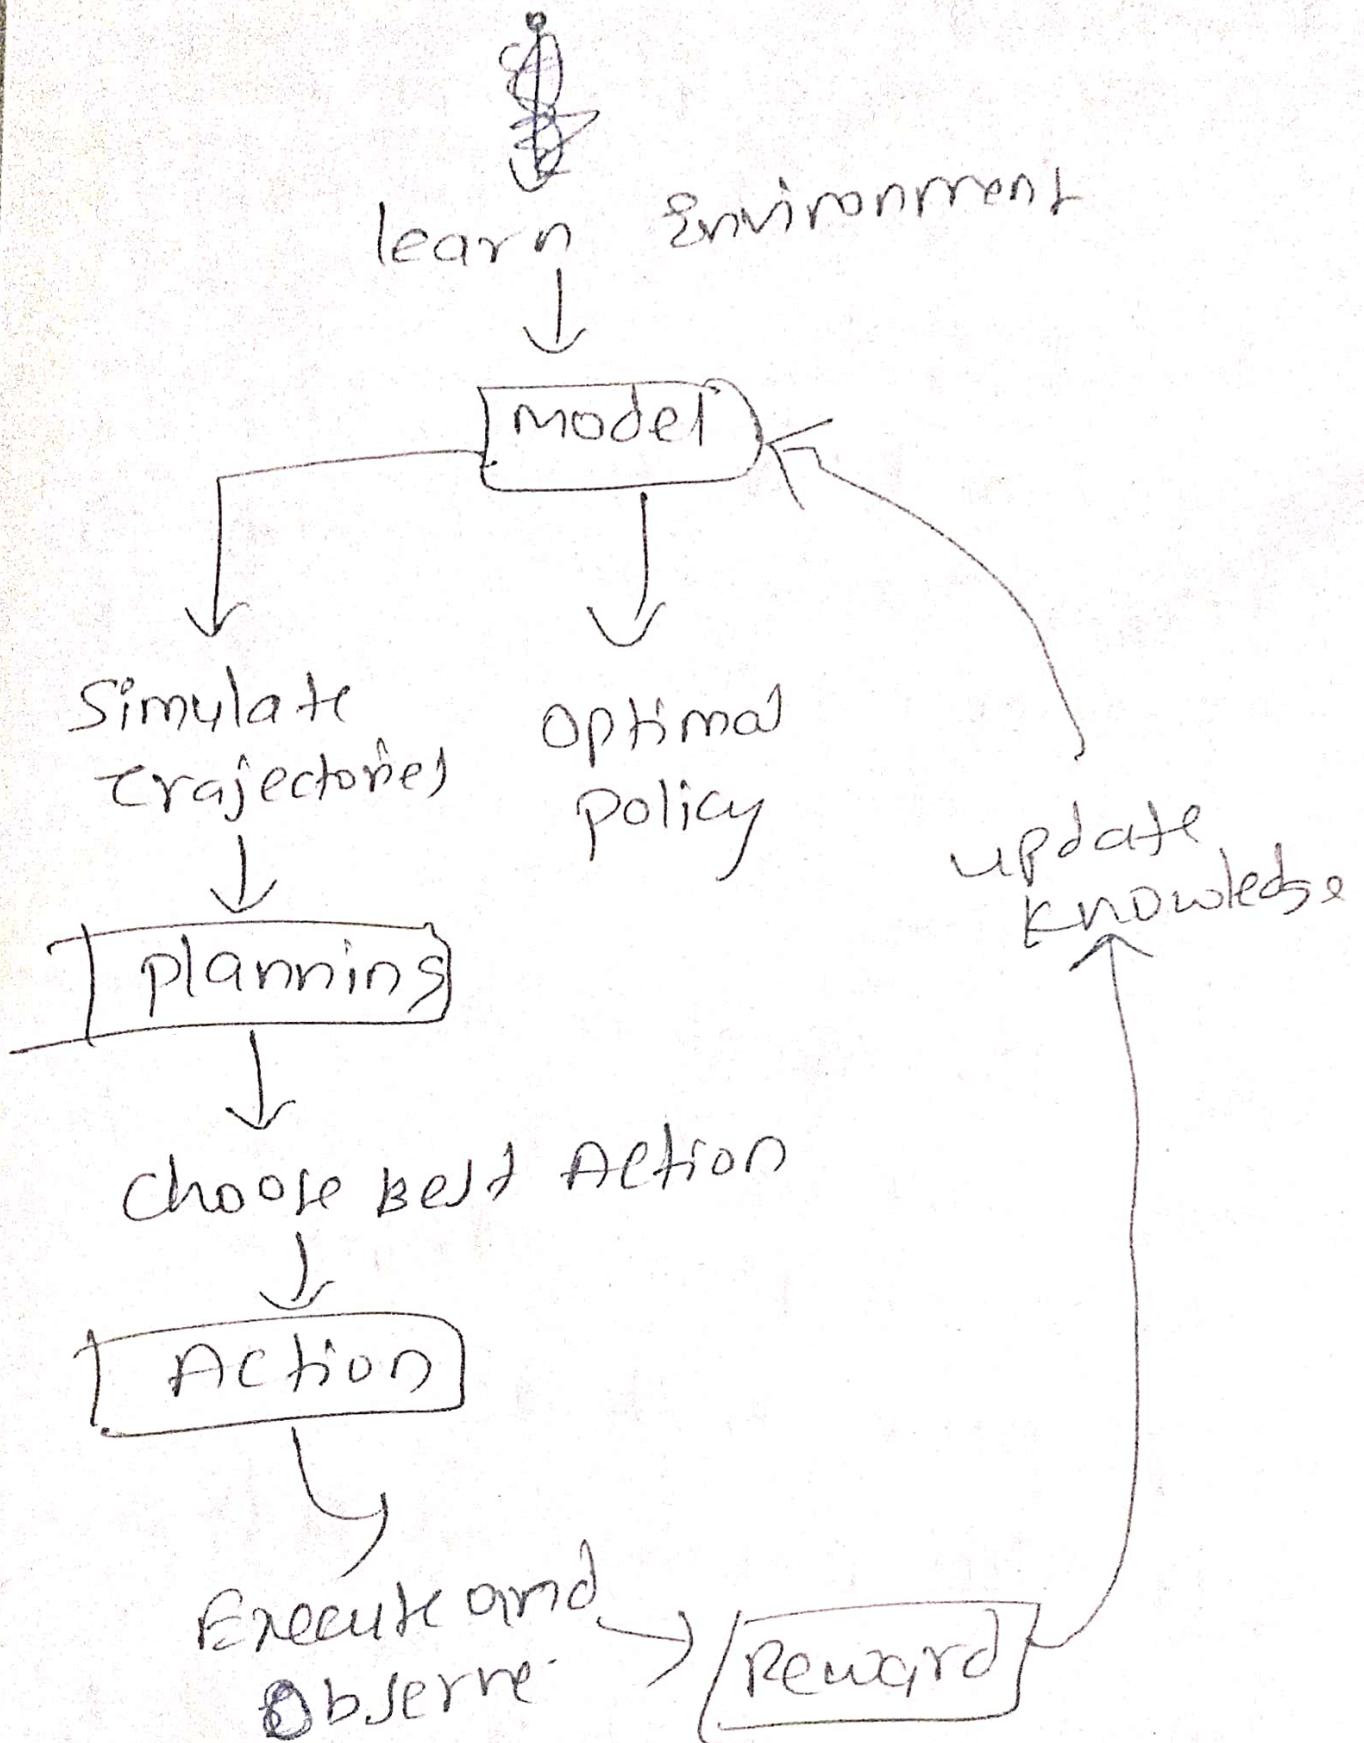 learn Environment
Model
Simulate
Trajectories
optimal
policy
update
knowledge
planning
choose Best Action
Action
Execute and
Observe
Reward